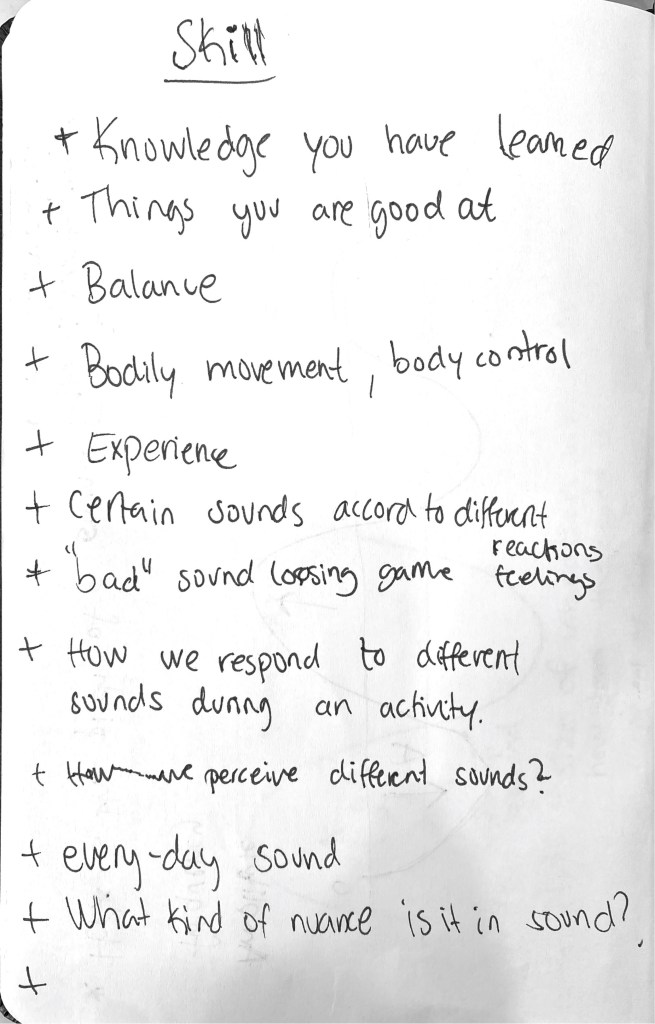 Skill
+ Knowledge you have learned
+ Things you are good at
+ Balance
+ Bodily movement, body control
+ Experience
+ Certain sounds accord to different
reactions
+ "bad" sound loosing game feelings
+ How we respond to different
sounds during an activity.
+ How we perceive different sounds?
+ every-day sound
+ What kind of nuance is it in sound?
+